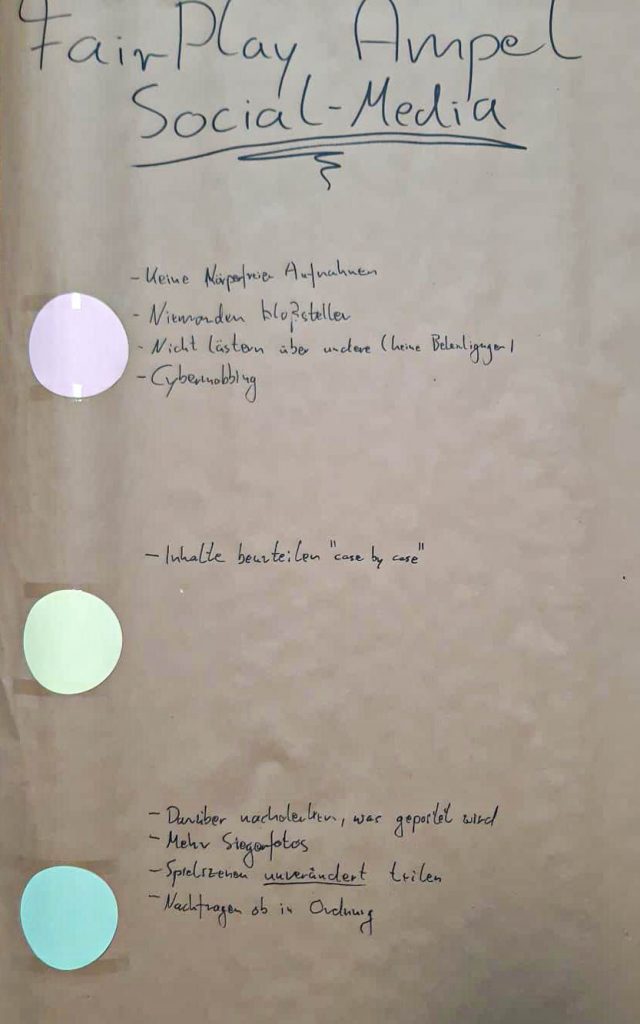 FairPlay Ampel
Social-Media
- Keine Körperfreien Aufnahmen
- Niemanden bloßstellen
- Nicht lästern über andere (keine Beleidigungen)
- Cybermobbing
- Inhalte beurteilen "case by case"
- Darüber nachdenken, was gepostet wird
- Mehr Siegerfotos
- Spielszenen unverändert teilen
- Nachfragen ob in Ordnung